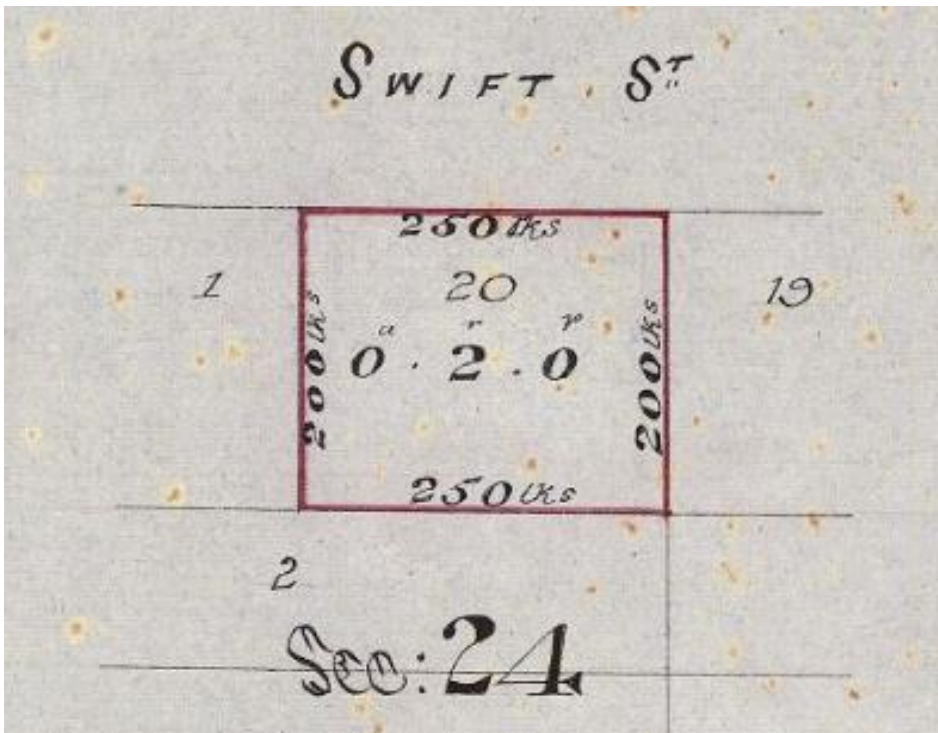 SWIFT . ST
250 lks
1 20 19
200 lks
a r p
0 . 2 . 0
200 lks
250 lks
2
Sec: 24